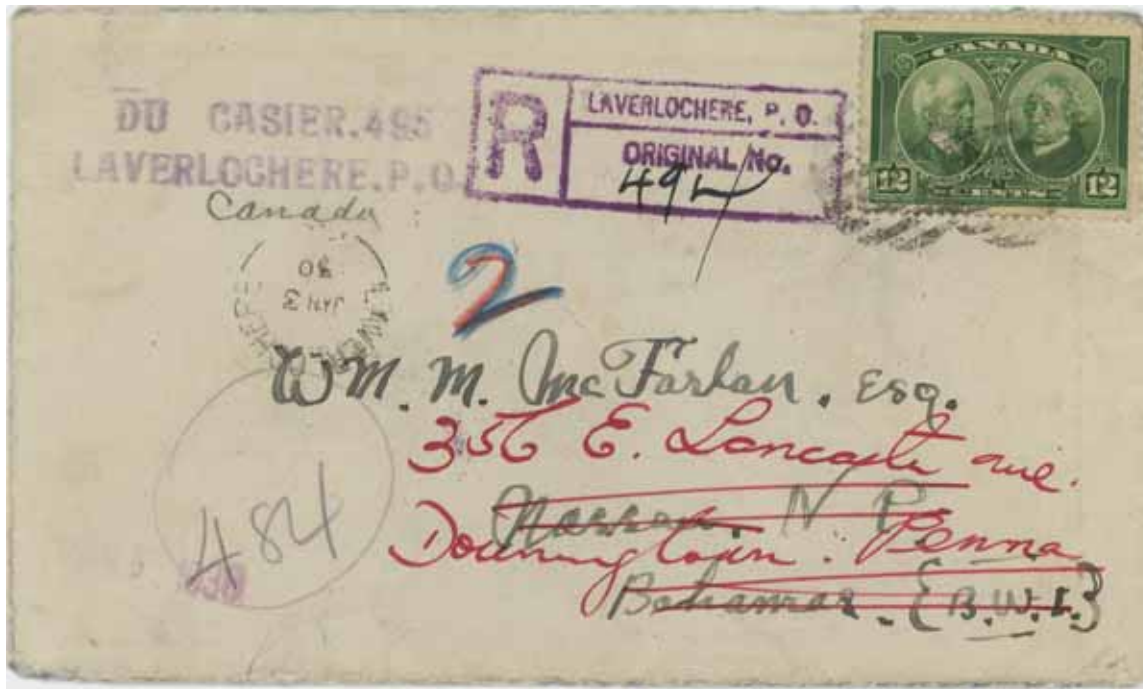 DU CASIER.495
LAVERLOCHERE.P.Q.
Canada
R
LAVERLOCHERE, P. Q.
ORIGINAL No.
494
CANADA
12 CENTS 12
JAN 3
30
2
Wm. M. McFarlan. Esq.
356 E. Lancaster ave.
Nassau. N P.
Downingtown. Penna
Bahamas. {B.W.I.}
484